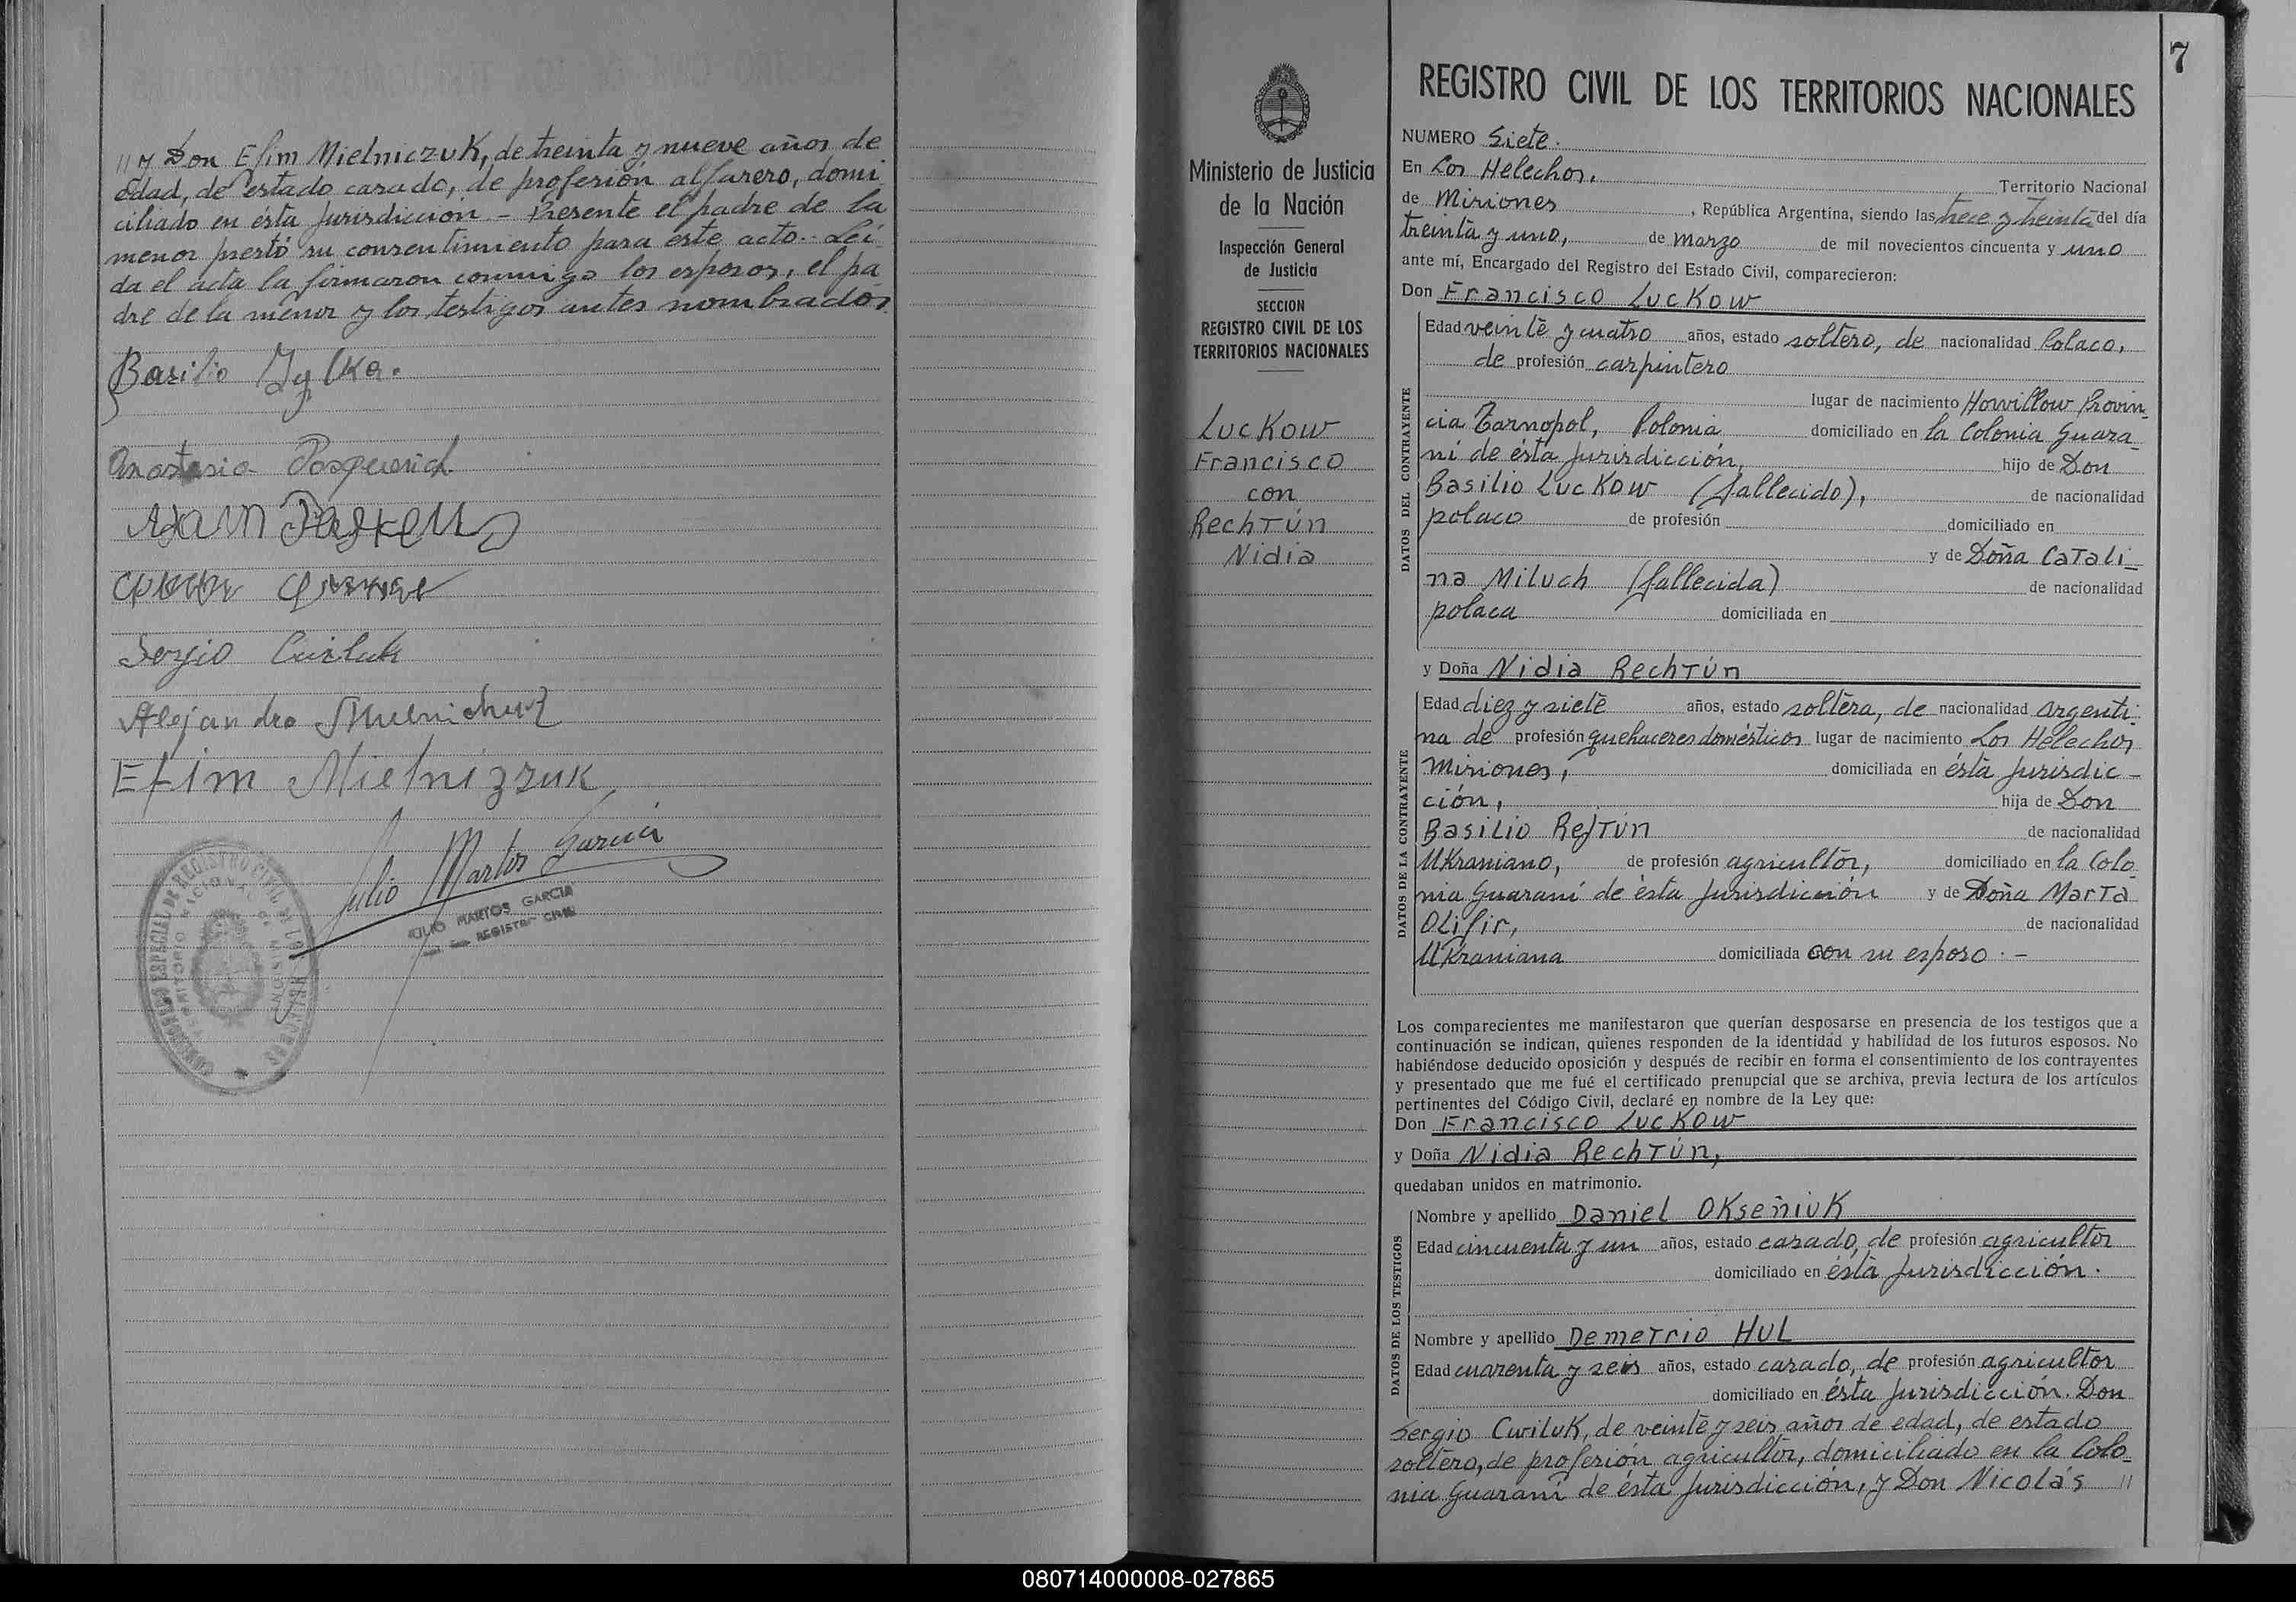 // y Don Efim Mielniczuk, de treinta y nueve años de
edad, de estado casado, de profesión alfarero, domi
ciliado en ésta Jurisdicción - Presente el padre de la
menor prestó su consentimiento para este acto.- Leí
da el acta la firmaron conmigo los esposos, el pa
dre de la menor y los testigos antes nombrados
Basilio
Anastasia
Sergio
Alejandro
Efim Mielnizzuk
Julio Martos Garcia
JULIO MARTOS GARCIA
REGISTRO CIVIL
Ministerio de Justicia
de la Nación
Inspección General
de Justicia
SECCION
REGISTRO CIVIL DE LOS
TERRITORIOS NACIONALES
Luckow
Francisco
con
Rechtún
Nidia
7
REGISTRO CIVIL DE LOS TERRITORIOS NACIONALES
NUMERO Siete.
En Los Helechos, Territorio Nacional
de Misiones, República Argentina, siendo las trece y treinta del día
treinta y uno, de Marzo de mil novecientos cincuenta y uno
ante mí, Encargado del Registro del Estado Civil, comparecieron:
Don Francisco Luckow
DATOS DEL CONTRAYENTE
Edad veinte y cuatro años, estado soltero, de nacionalidad Polaco,
de profesión carpintero
lugar de nacimiento Horvillow Provin_
cia Tarnopol, Polonia domiciliado en la Colonia Guara_
ní de ésta Jurisdicción, hijo de Don
Basilio Luckow (fallecido), de nacionalidad
polaco de profesión domiciliado en
y de Doña Catali_
na Miluch (fallecida) de nacionalidad
polaca domiciliada en
y Doña Nidia Rechtún
DATOS DE LA CONTRAYENTE
Edad diez y siete años, estado soltera, de nacionalidad argenti_
na de profesión quehaceres domésticos lugar de nacimiento Los Helechos
Misiones, domiciliada en ésta Jurisdic-
ción, hija de Don
Basilio Rejtún de nacionalidad
Ukraniano, de profesión agricultor, domiciliado en la Colo_
nia Guaraní de ésta Jurisdicción y de Doña Marta
Olifir, de nacionalidad
Ukraniana domiciliada con su esposo.-
Los comparecientes me manifestaron que querían desposarse en presencia de los testigos que a
continuación se indican, quienes responden de la identidad y habilidad de los futuros esposos. No
habiéndose deducido oposición y después de recibir en forma el consentimiento de los contrayentes
y presentado que me fué el certificado prenupcial que se archiva, previa lectura de los artículos
pertinentes del Código Civil, declaré en nombre de la Ley que:
Don Francisco Luckow
y Doña Nidia Rechtún,
quedaban unidos en matrimonio.
DATOS DE LOS TESTIGOS
Nombre y apellido Daniel Okseñiuk
Edad cincuenta y un años, estado casado, de profesión agricultor
domiciliado en ésta Jurisdicción.
Nombre y apellido Demetrio Hul
Edad cuarenta y seis años, estado casado, de profesión agricultor
domiciliado en ésta Jurisdicción. Don
Sergio Cwiluk, de veinte y seis años de edad, de estado
soltero, de profesión agricultor, domiciliado en la Colo_
nia Guaraní de ésta Jurisdicción, y Don Nicolás //
080714000008-027865